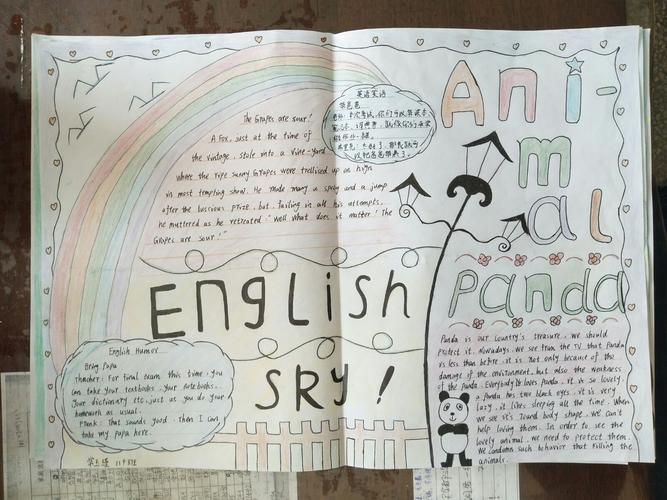 The Grapes are sour!
A Fox, just at the time of
the vintage, stole into a vine-yard
where the ripe sunny Grapes were trellised up on high
in most tempting show. He made many a spring and a jump
after the luscious prize, but, failing in all his attempts,
he muttered as he retreated. "Well what does it matter! The
Grapes are sour!"
英语笑话
带爸爸
ENGLisH
SRy!
English Humor
Bring Papa
Theacher: For final exam this time, you
can take your textbooks, your notebooks,
your dictionary etc, just as you do your
homework as usual.
Frank: That sounds good. Then I can
take my papa here.
Ani-
mal
panda
Panda is our country's treasure, we should
protect it. Nowadays, we see from the TV that panda
is less than before, it is not only because of the
damage of the environment, but also the weakness
of the panda. Everybody loves panda, it is so lovely.
a panda has two black eyes, it is very
lazy, it likes sleeping all the time. When
we see it's round body shape, we can't
help loving them. In order to see the
lovely animal, we need to protect them.
We condemn such behavior that killing the
animals.